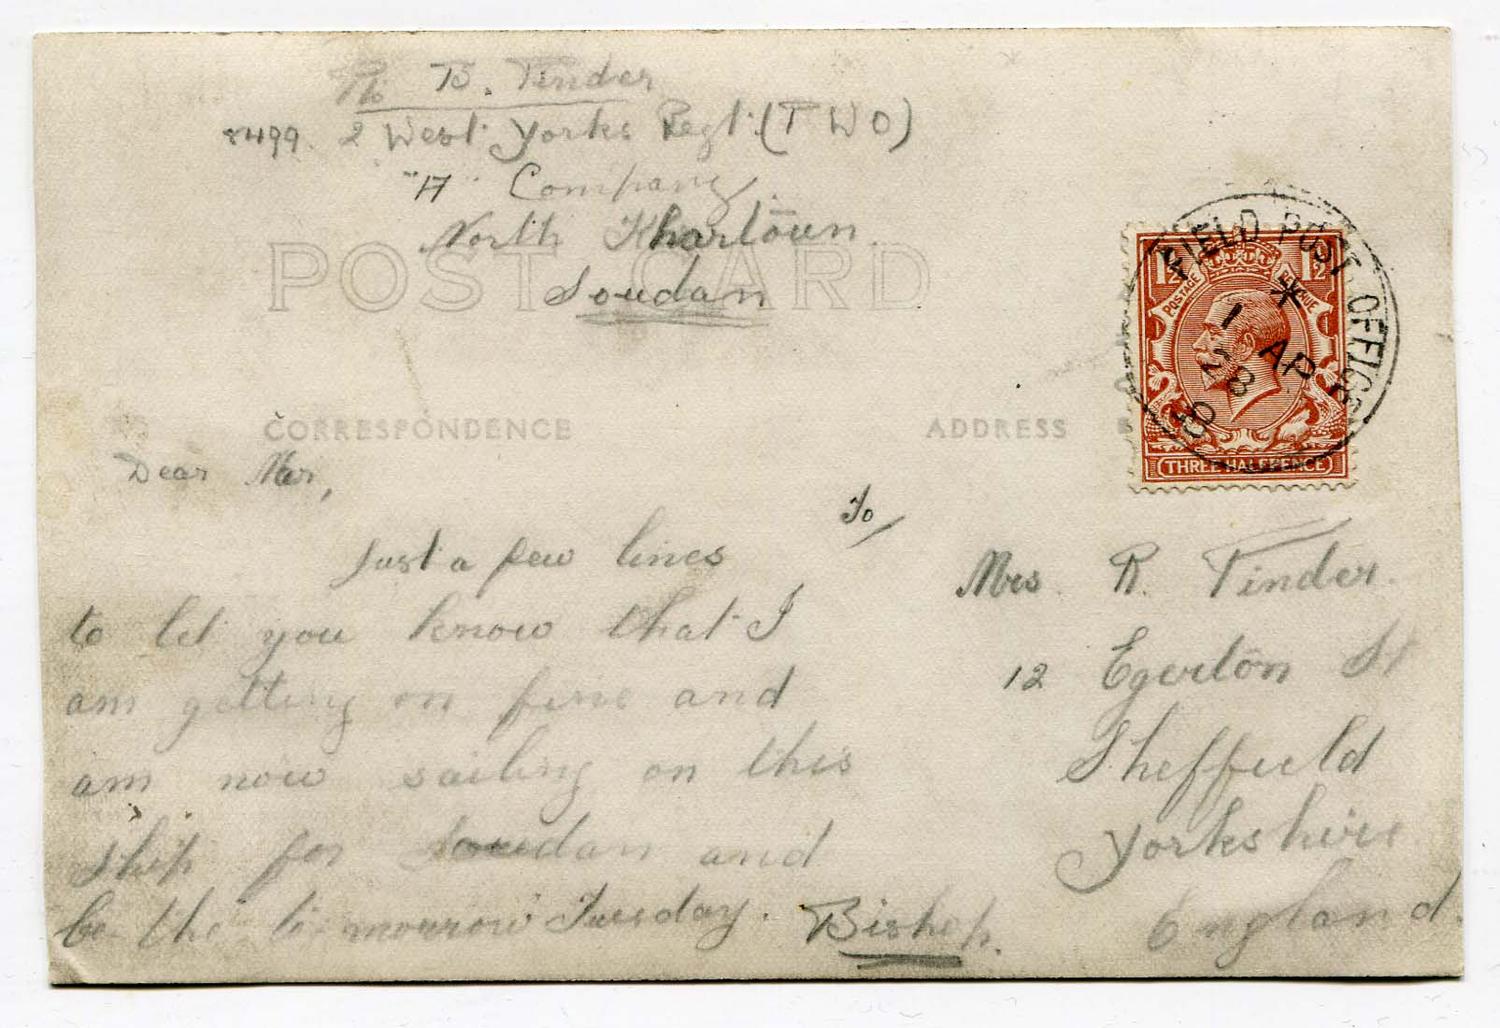 Pte B. Tinder
8499. 2 West Yorks Regt. (PWO)
"A" Company.
North Khartoun.
Soudan
POST CARD
FIELD POST OFFICE
1 AP
28
POSTAGE REVENUE
1½ 1½
THREE HALFPENCE
CORRESPONDENCE
ADDRESS
Dear Mar,
Just a few lines
to let you know that I
am getting on fine and
am now sailing on this
ship for Soudan and
be the to-morrow Tuesday. Bishop.
To/
Mrs. R. Tinder.
12 Egerton St
Sheffield
Yorkshire.
England.